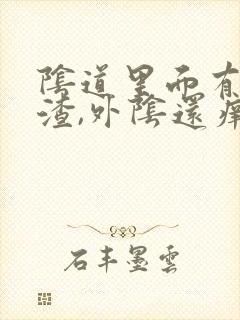 陰道里面有
渣,外陰還癢
石丰墨雲